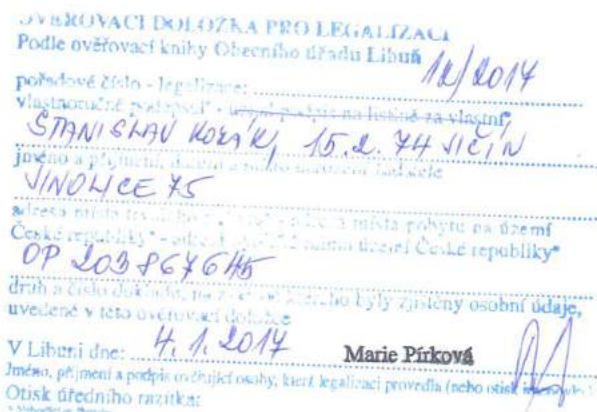 OVĚROVACÍ DOLOŽKA PRO LEGALIZACI
Podle ověřovací knihy Obecního úřadu Libuň
pořadové číslo - legalizace: 12/2017
vlastnoručně podepsal* - uznal podpis na listině za vlastní*
STANISLAV KOZÁK, 15.2.74 JIČÍN
jméno a příjmení, datum a místo narození žadatele
JINOLICE 75
adresa místa pobytu na území
České republiky* - území České republiky*
OP 203867645
druh a číslo dokladu, na základě kterého byly zjištěny osobní údaje,
uvedené v této ověřovací doložce
V Libuni dne: 4.1.2017 Marie Pírková
Jméno, příjmení a podpis ověřující osoby, která legalizaci provedla (nebo otisk
Otisk úředního razítka: